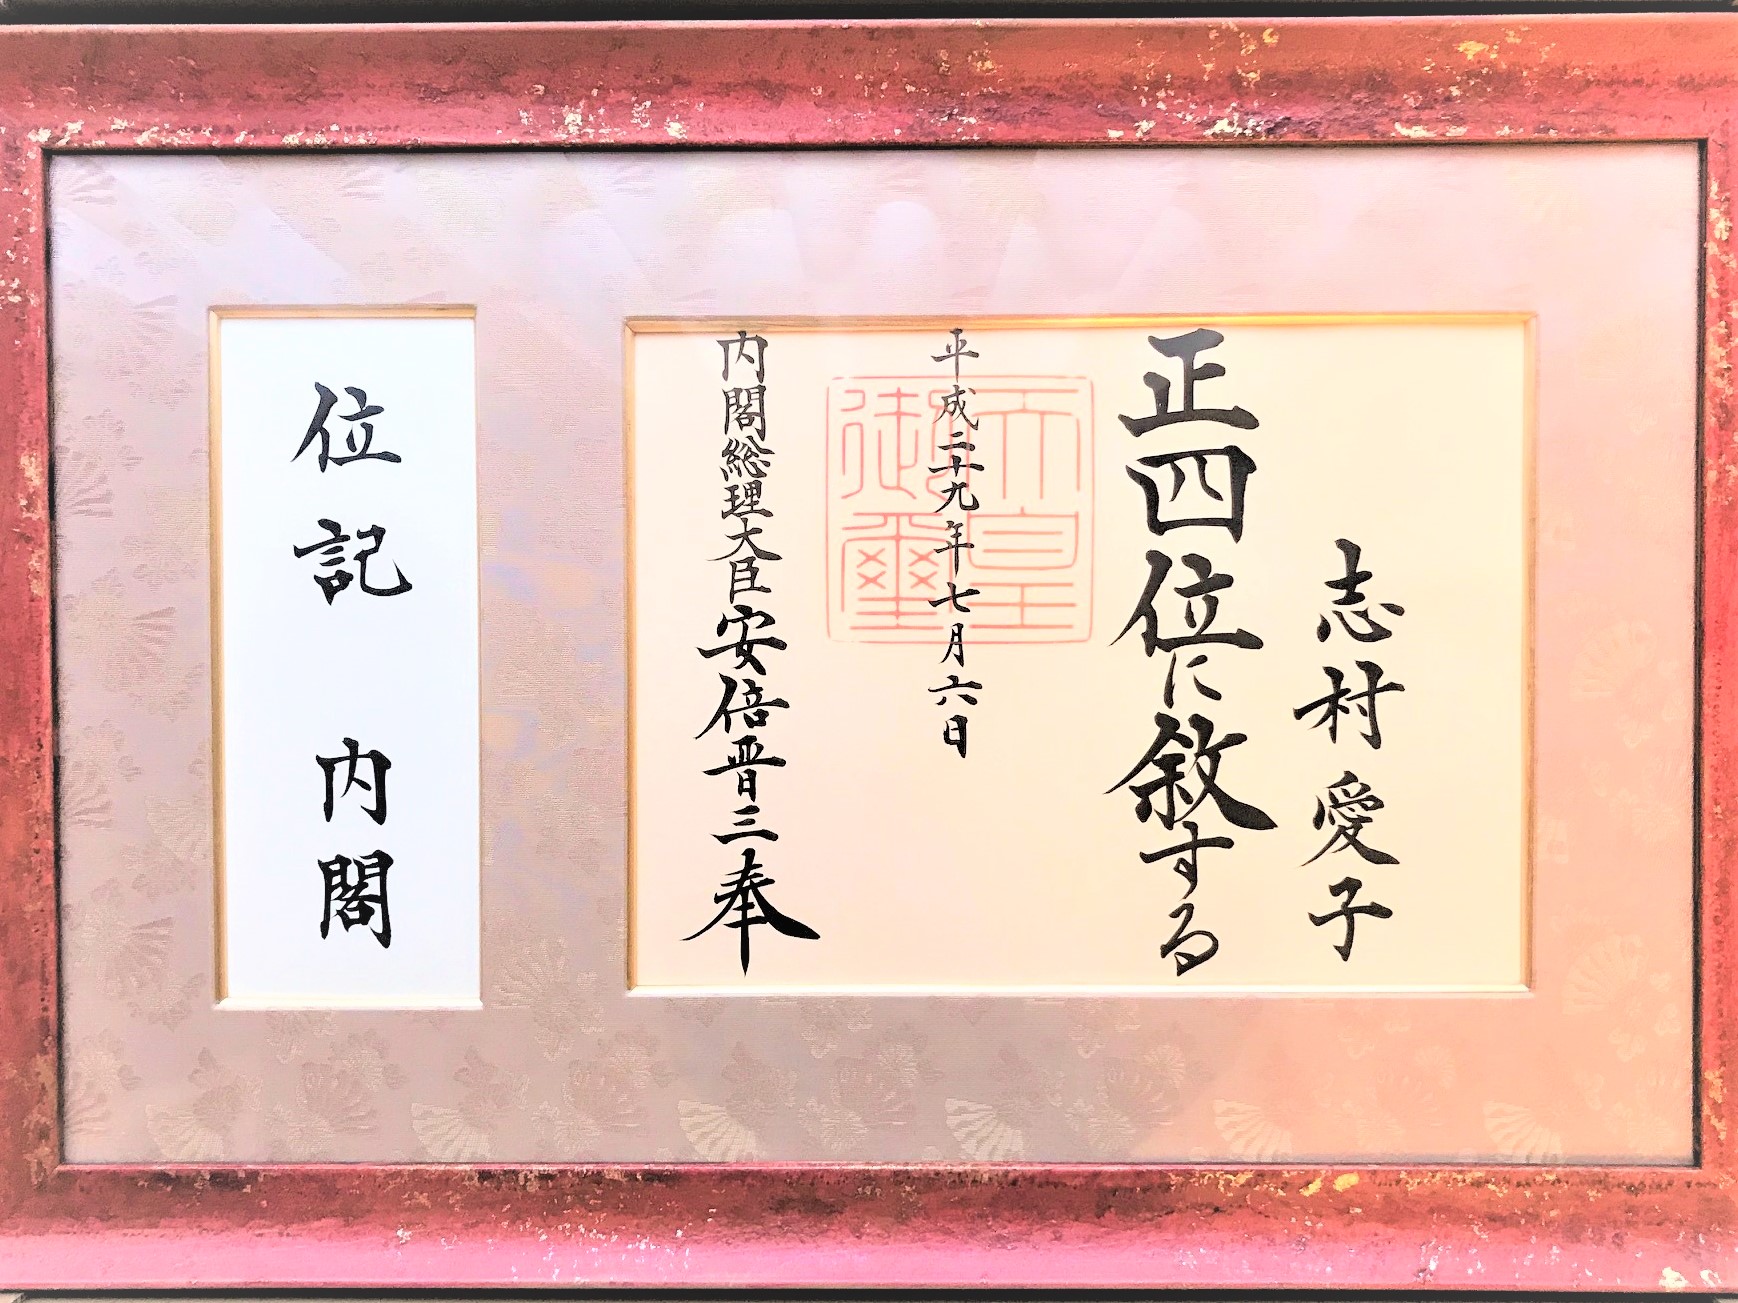 志村愛子
正四位に敘する
平成二十九年七月六日
天皇
御璽
内閣総理大臣安倍晋三奉
位記 内閣